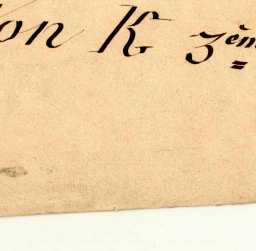 on K 3èm